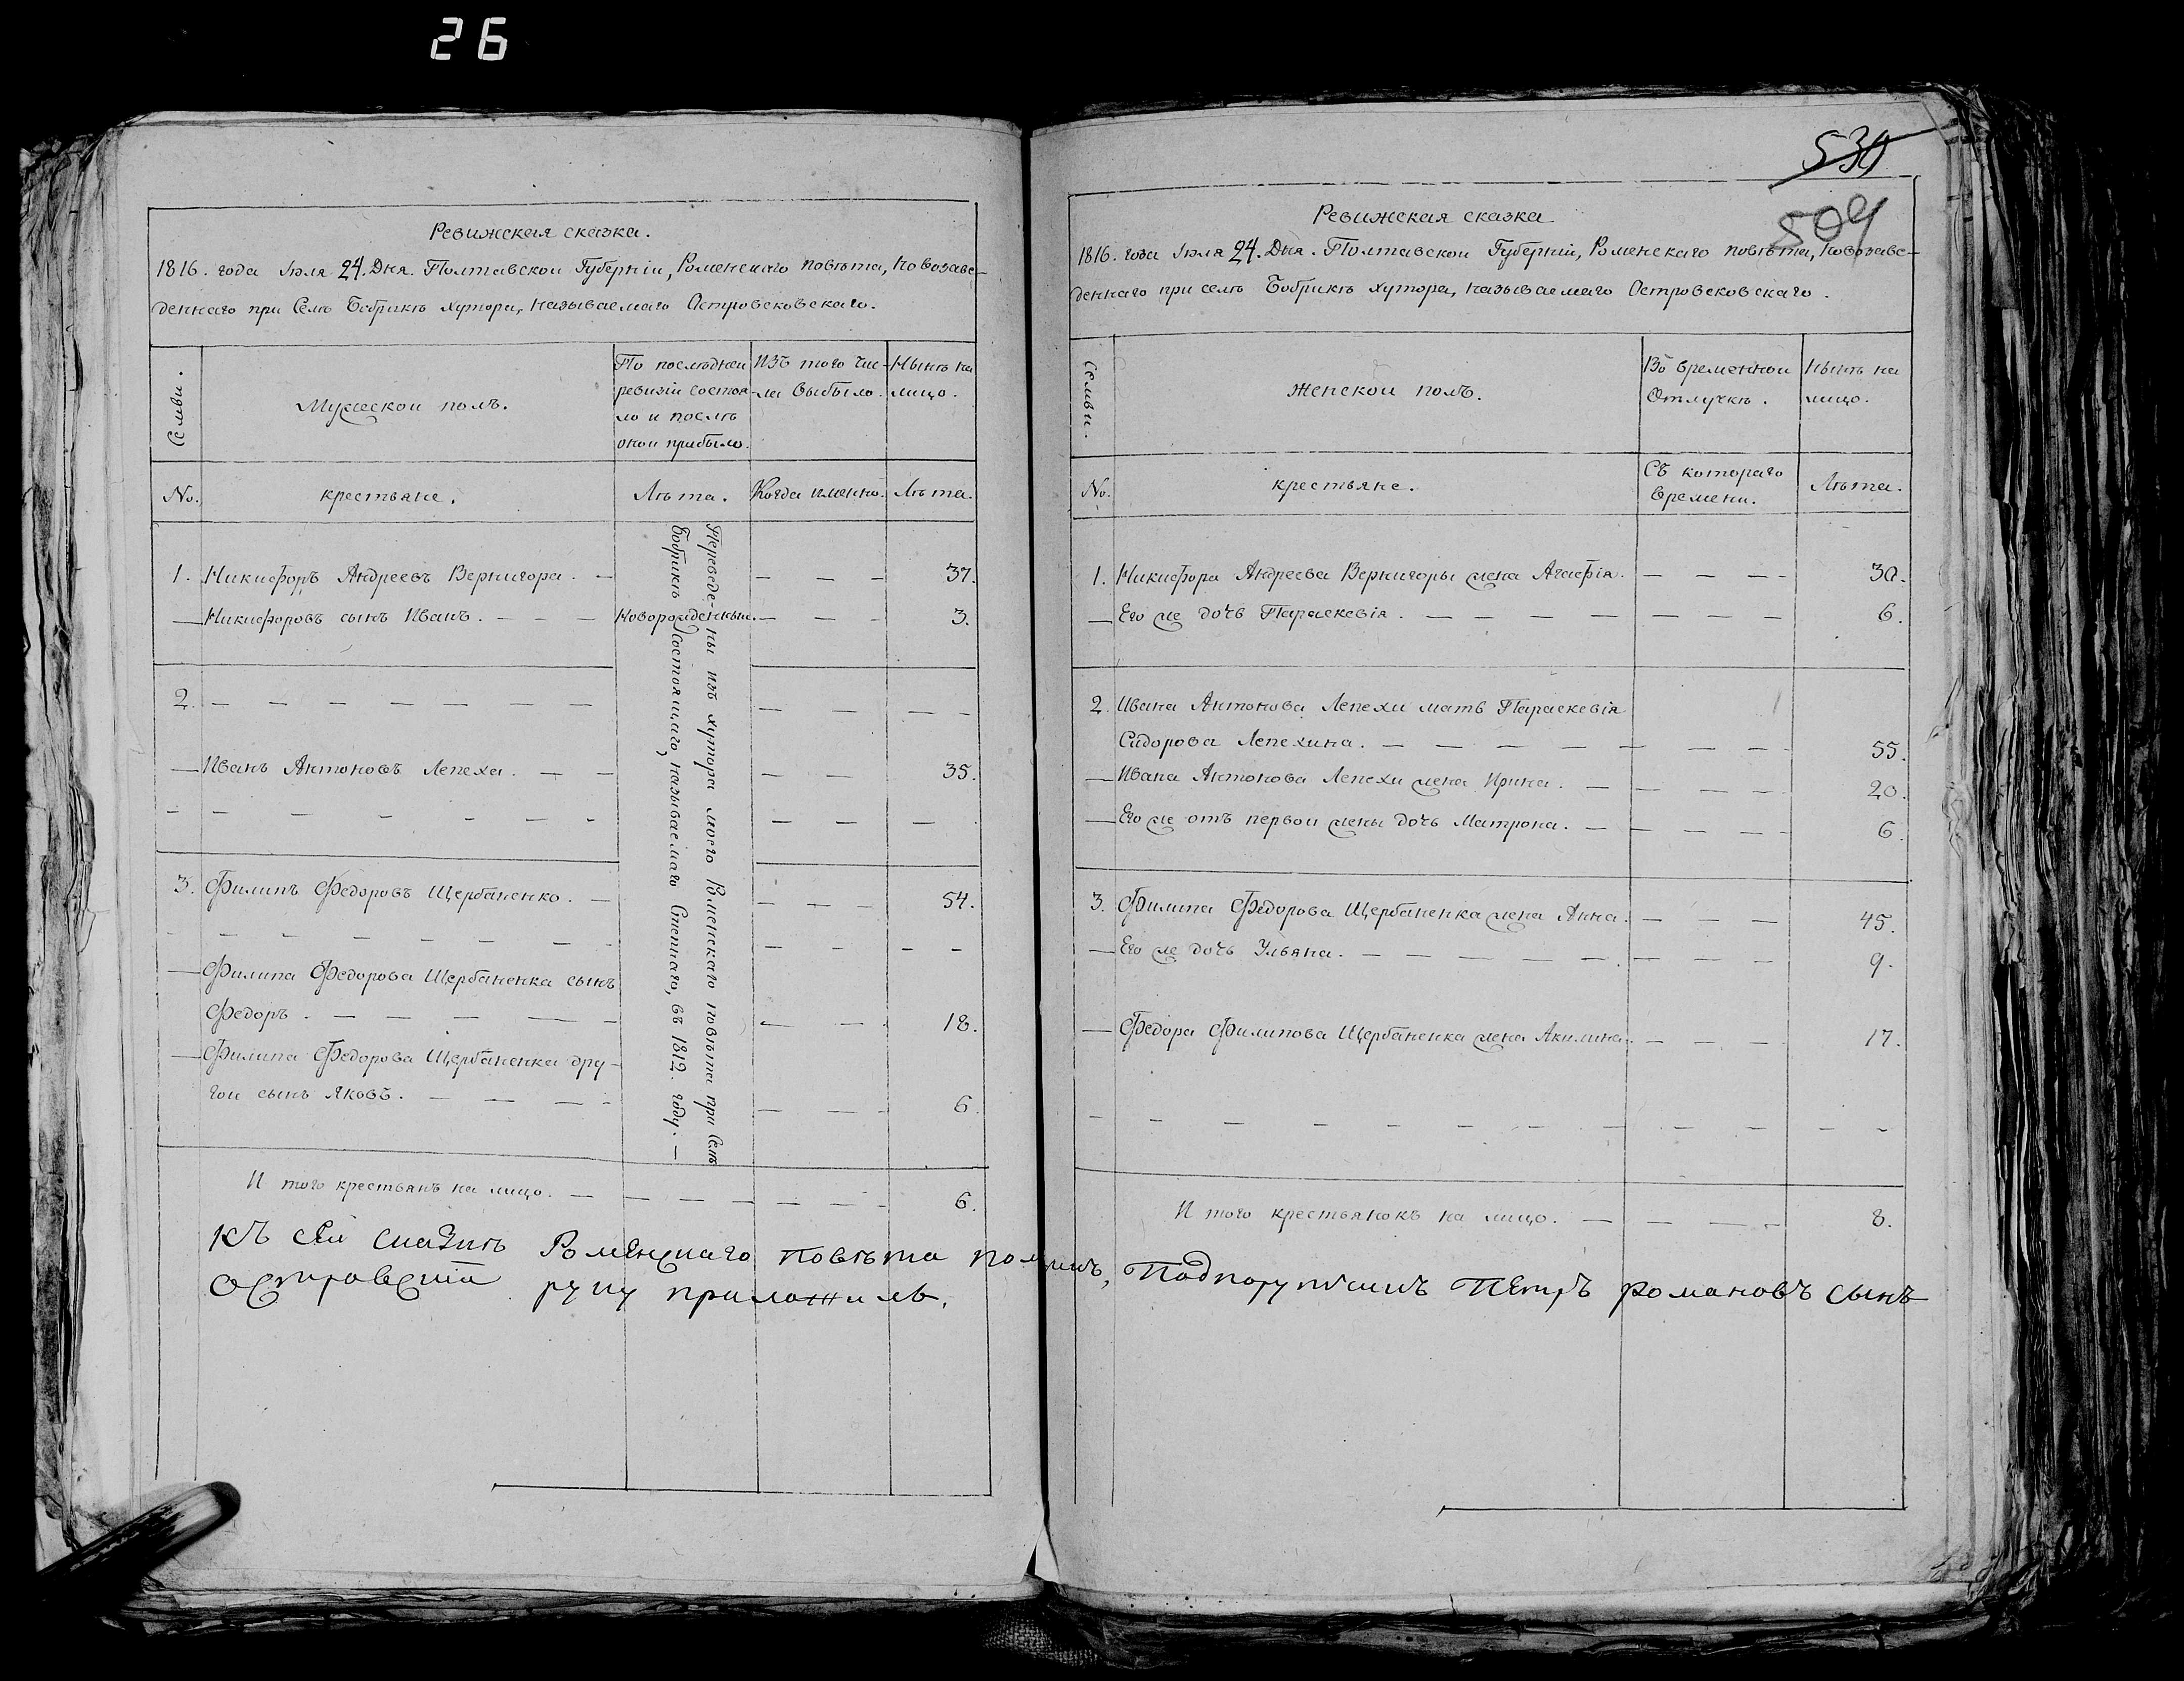 26
Ревижская сказка.
1816. года Іюля 24. Дня. Полтавской Губерніи, Роменскаго повѣта, новозаве-
деннаго при Селѣ Бобрикѣ хутора, называемаго Островсковскаго.
Семьи.
Мужеской полъ.
По послѣдней
ревизіи состоя-
ло и послѣ
оной прибыло.
Изъ того чис-
ла выбыло.
Нынѣ на
лицо.
No.
крестьяне.
Лѣта.
Когда именно.
Лѣта.
Переведе-ны изъ хутора моего Роменскаго повѣта при Селѣ
Бобрикѣ Состоящаго, называемаго Степнаго, въ 1812. году. —
1. Никифоръ Андреевъ Вернигора. — — — — 37.
— Никифоровъ сынъ Иванъ. — — — Новорожденный. — — — 3.
2. — — — — — — — — — — —
— Иванъ Антоновъ Лепеха. — — — — 35.
— — — — — — — — —
3. Филипъ Федоровъ Щербаненко. — — — — 54.
— — — — — — — — — — — — —
— Филипа Федорова Щербаненка сынъ
Федоръ. — — — — — — — 18.
— Филипа Федорова Щербаненка дру-
гой сынъ Яковъ. — — — — — — — 6.
И того крестьянъ на лицо. — — — — — — — 6.
530
509
Ревижская сказка
1816. года Іюля 24. Дня. Полтавской Губерніи, Роменскаго повѣта, новозаве-
деннаго при селѣ Бобрикѣ хутора, называемаго Островсковскаго.
Семьи.
Женской полъ.
Во временной
Отлучкѣ.
Нынѣ на
лицо.
No.
крестьяне.
Съ котораго
времени.
Лѣта.
1. Никифора Андреева Вернигоры жена Агафія. — — — — 30.
— Его же дочь Параскевія. — — — — — — — — 6.
2. Ивана Антонова Лепехи мать Параскевія
Сидорова Лепехина. — — — — — — — 55.
— Ивана Антонова Лепехи жена Ирина. — — — — 20.
— Его же отъ первой жены дочь Матрона. — — — — 6.
3. Филипа Федорова Щербаненка жена Анна. — — — 45.
— Его же дочь Ульяна. — — — — — — — — — 9.
— Федора Филипова Щербаненка жена Акилина. — — — 17.
— — — — — — — — — — — — —
И того крестьянокъ на лицо. — — — — 8.
Къ сей сказкѣ Роменскаго повѣта помѣщикъ, Подпоручикъ Петръ Романовъ сынъ
Островскій руку приложилъ.